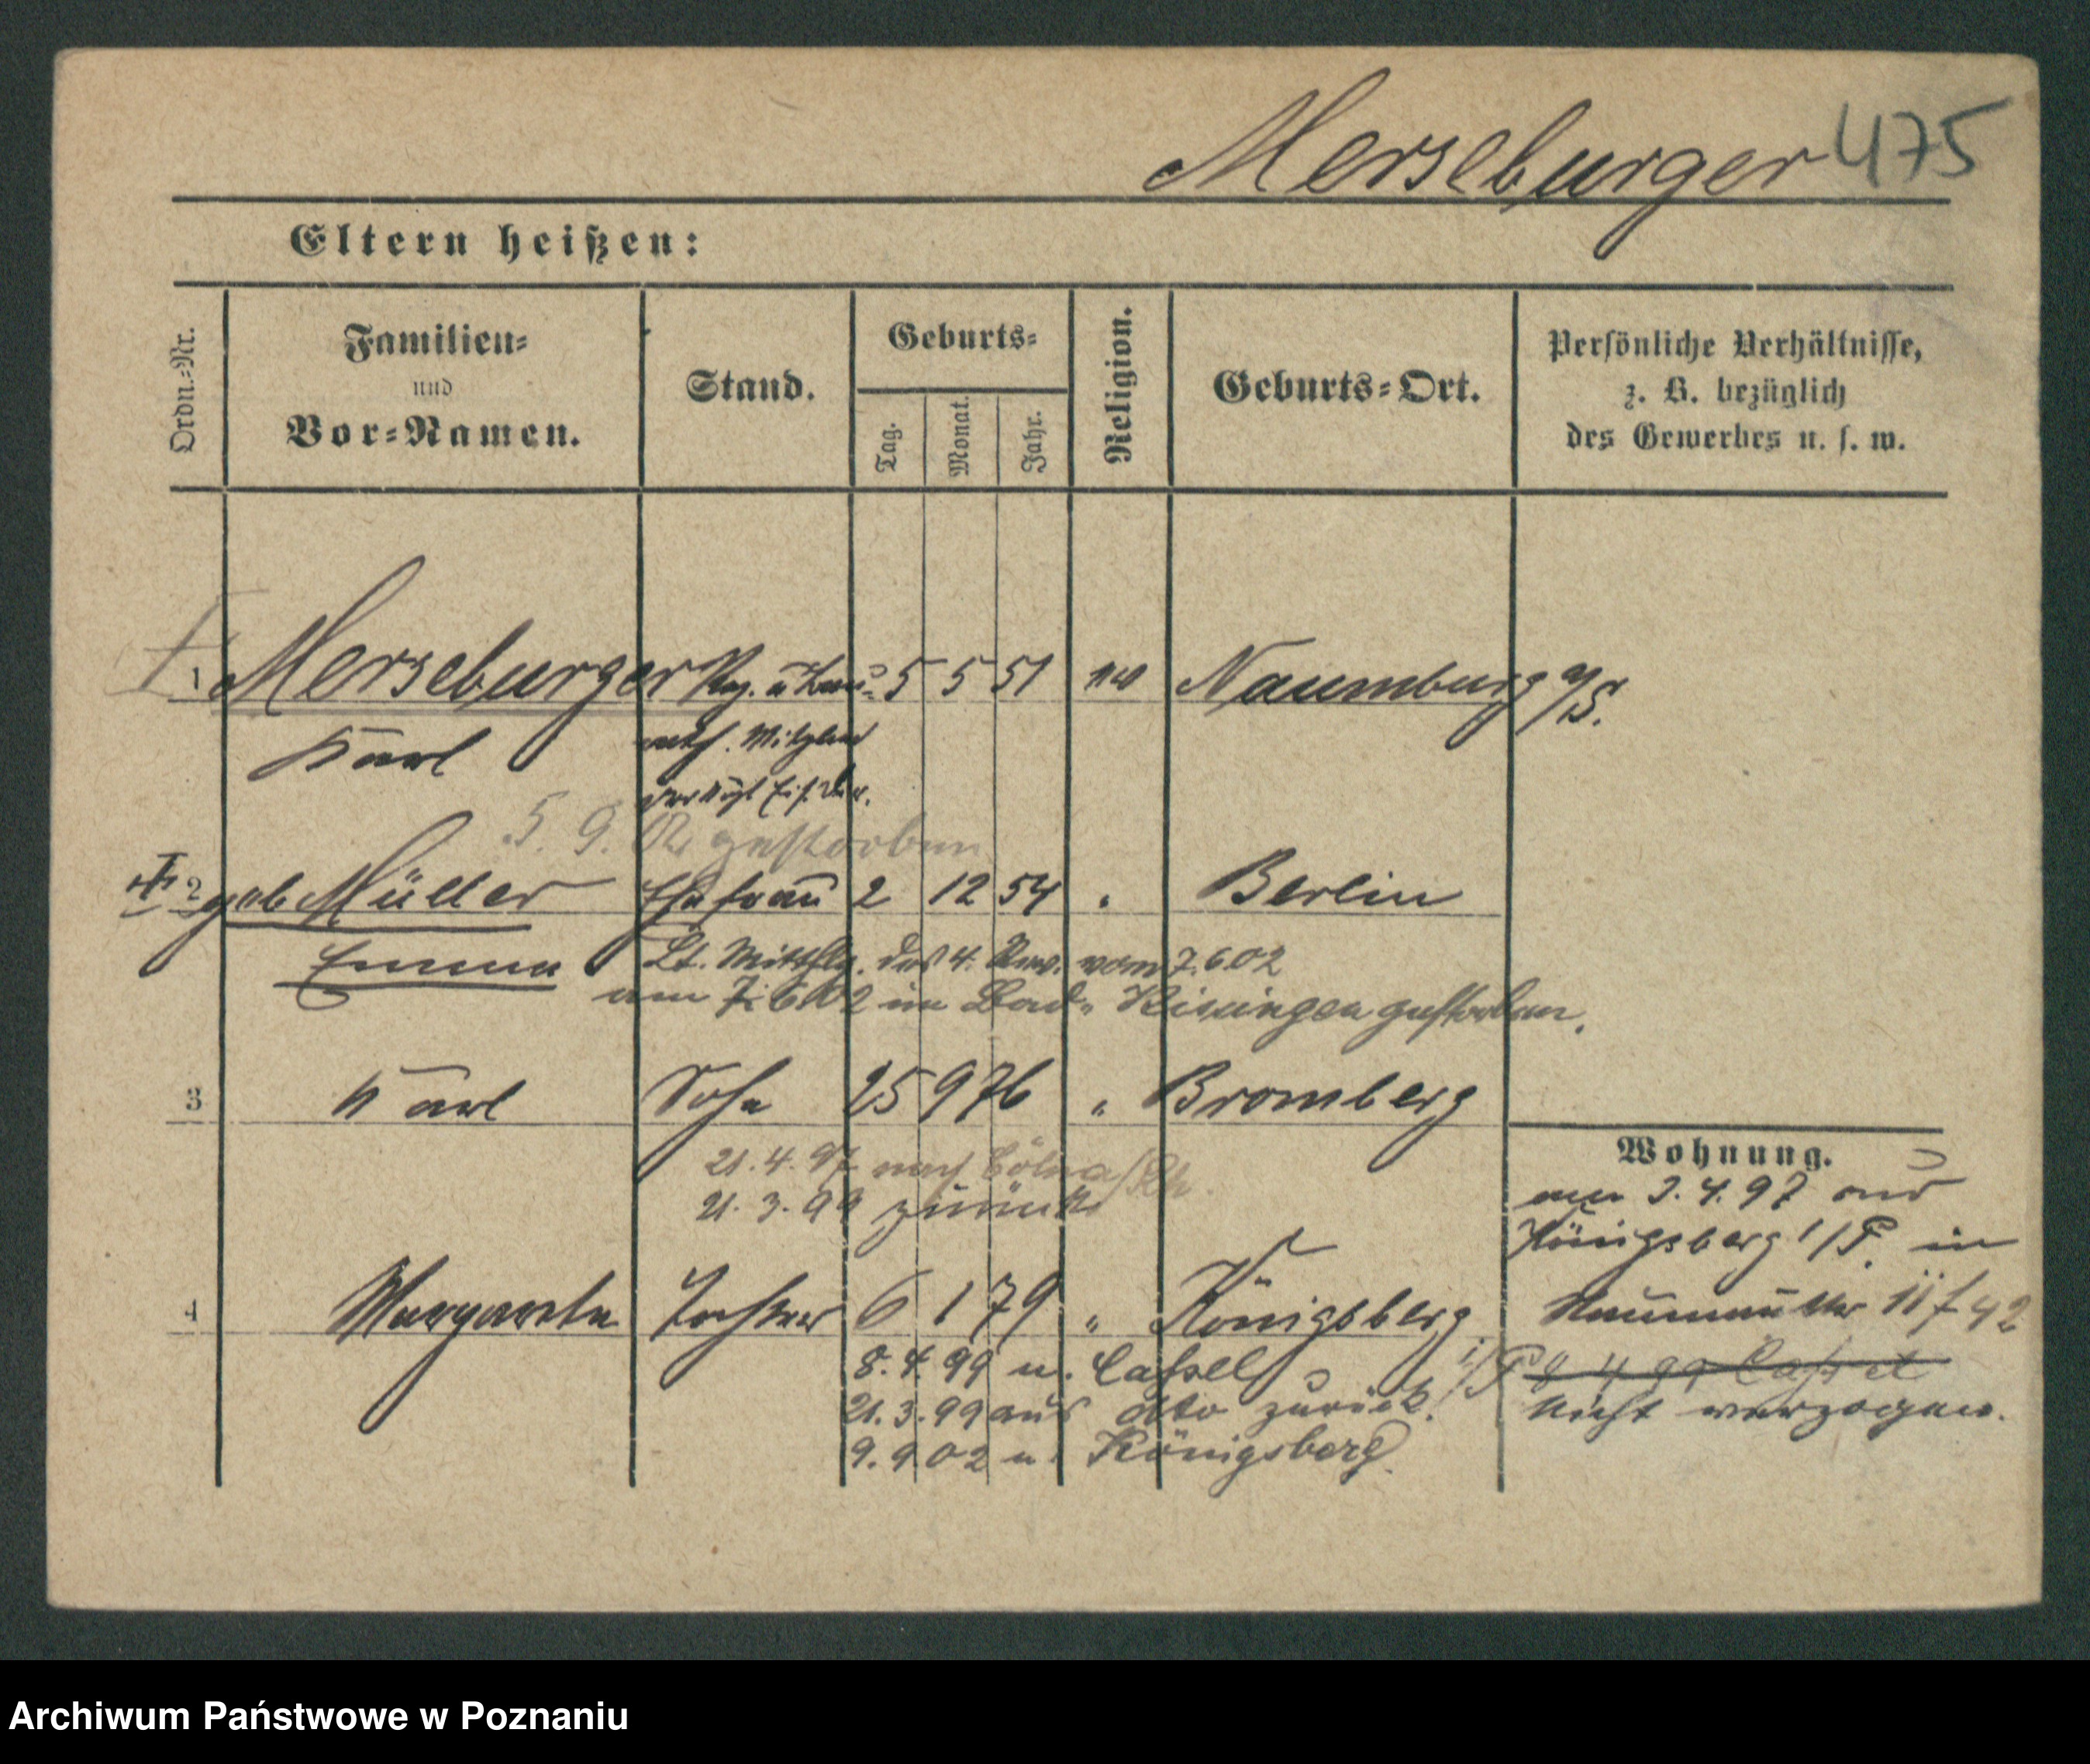 Merseburger 475
Eltern heißen:
Ordn.-Nr.
Familien-
und
Vor-Namen.
Stand.
Geburts-
Tag.
Monat.
Jahr.
Religion.
Geburts-Ort.
Persönliche Verhältnisse,
z. B. bezüglich
des Gewerbes u. s. w.
1 Merseburger Reg. u 5 5 51 Naumburg a/S.
Karl Mitglied
5. 9. 02 gestorben
2 geb Müller Ehefrau 2 12 54 " Berlin
Emma Lt. Mitthlg. des 4. Rev. vom 7.6.02
am 7.6.02 in Bad- Kissingen gestorben.
3 Karl Sohn 25 9 76 " Bromberg
21.4.97 nach Cöln a/Rh.
21.3.99 zurück
4 Margarete Tochter 6 1 79 " Königsberg i/P
8.4.99 n. Cassel
21.3.99 aus dto zurück.
9.9.02 n. Königsberg
Wohnung.
am 3.4.97 aus
Königsberg i/P. in
42
8 4 99 Cassel
nicht verzogen.
Archiwum Państwowe w Poznaniu